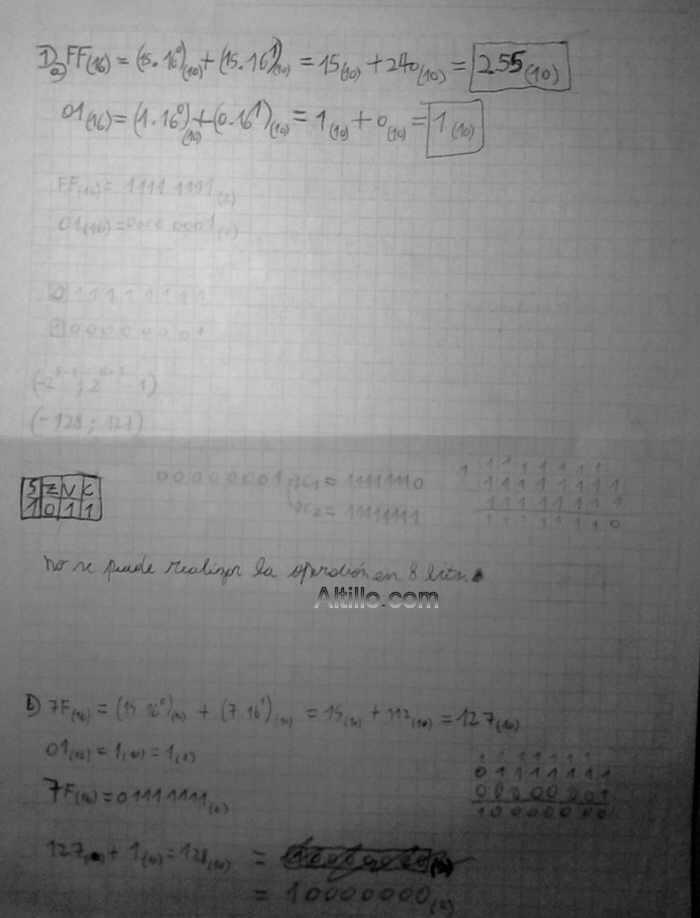 1) a) FF(16) = (15.16⁰)(10) + (15.16¹)(10) = 15(10) + 240(10) = 255(10)
01(16) = (1.16⁰)(10) + (0.16¹)(10) = 1(10) + 0(10) = 1(10)
FF(16) = 1111 1111(2)
01(16) = 0000 0001(2)
0 1 1 1 1 1 1 1 1
0 0 0 0 0 0 0 1
(-128 ; 127)
S Z V C
1 0 1 1
00000001 C1 = 11111110
C2 = 11111111
1 1 1 1 1 1 1 1
1 1 1 1 1 1 1 1
1 1 1 1 1 1 1 1
1 1 1 1 1 1 1 0
no se puede realizar la operación en 8 bits.
Altillo.com
b) 7F(16) = (15.16⁰)(10) + (7.16¹)(10) = 15(10) + 112(10) = 127(10)
01(16) = 1(10) = 1(2)
7F(16) = 01111111(2)
1 1 1 1 1 1 1
0 1 1 1 1 1 1 1
0 0 0 0 0 0 0 1
1 0 0 0 0 0 0 0
127(10) + 1(10) = 128(10) =
= 10000000(2)